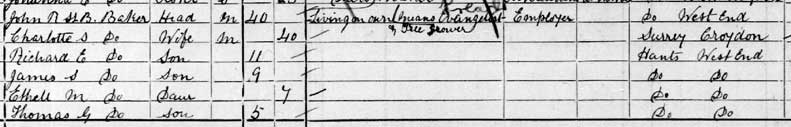 Do Do S
John R St B. Baker Head M 40 Living on own means Evangelist Employer Do West End
& Tree Grower
Charlotte S Do Wife M 40 Surrey Croydon
Richard E Do Son 11 Hants West End
James S Do Son 9 Do Do
Ethell M Do Daur 7 Do Do
Thomas G Do Son 5 Do Do